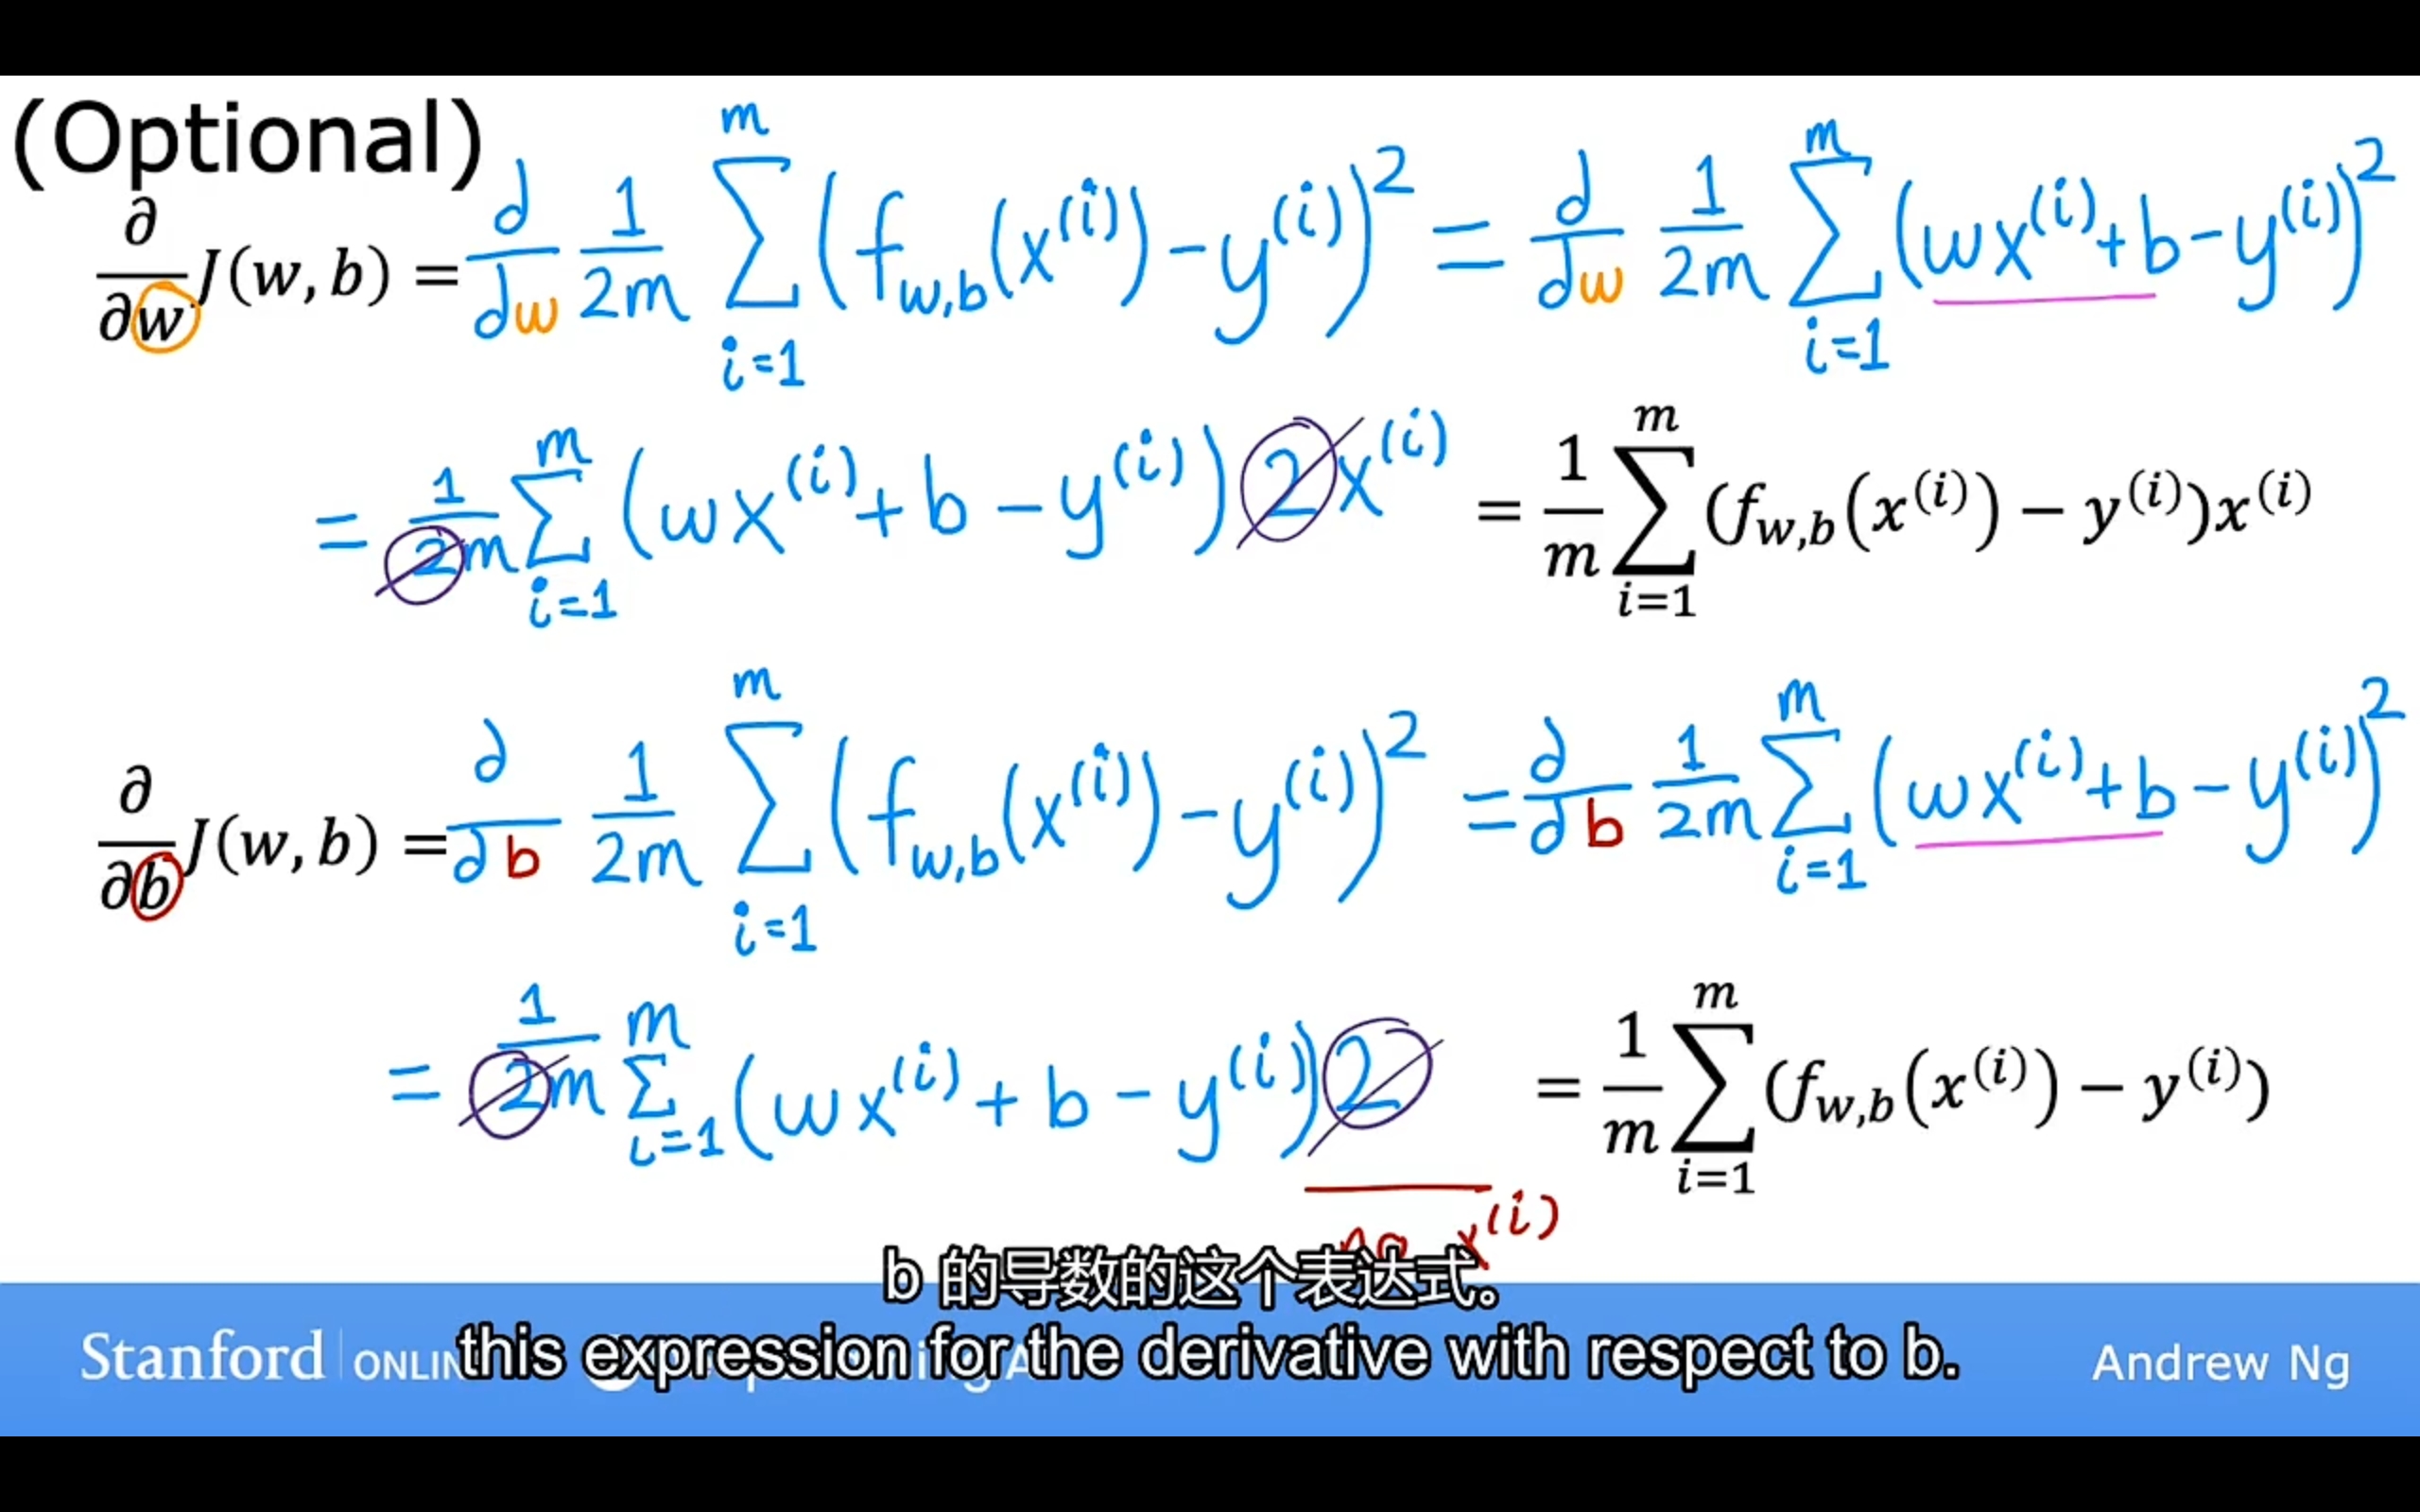 (Optional)
∂/∂w J(w, b) = d/dw 1/2m ∑_{i=1}^{m} (f_{w,b}(x^{(i)}) - y^{(i)})^2 = d/dw 1/2m ∑_{i=1}^{m} (wx^{(i)} + b - y^{(i)})^2
= 1/2m ∑_{i=1}^{m} (wx^{(i)} + b - y^{(i)}) 2 x^{(i)} = 1/m ∑_{i=1}^{m} (f_{w,b}(x^{(i)}) − y^{(i)})x^{(i)}
∂/∂b J(w, b) = ∂/∂b 1/2m ∑_{i=1}^{m} (f_{w,b}(x^{(i)}) - y^{(i)})^2 = ∂/∂b 1/2m ∑_{i=1}^{m} (wx^{(i)} + b - y^{(i)})^2
= 1/2m ∑_{i=1}^{m} (wx^{(i)} + b - y^{(i)}) 2 = 1/m ∑_{i=1}^{m} (f_{w,b}(x^{(i)}) − y^{(i)})
no x^{(i)}
b 的导数的这个表达式。
this expression for the derivative with respect to b.
Stanford
Andrew Ng